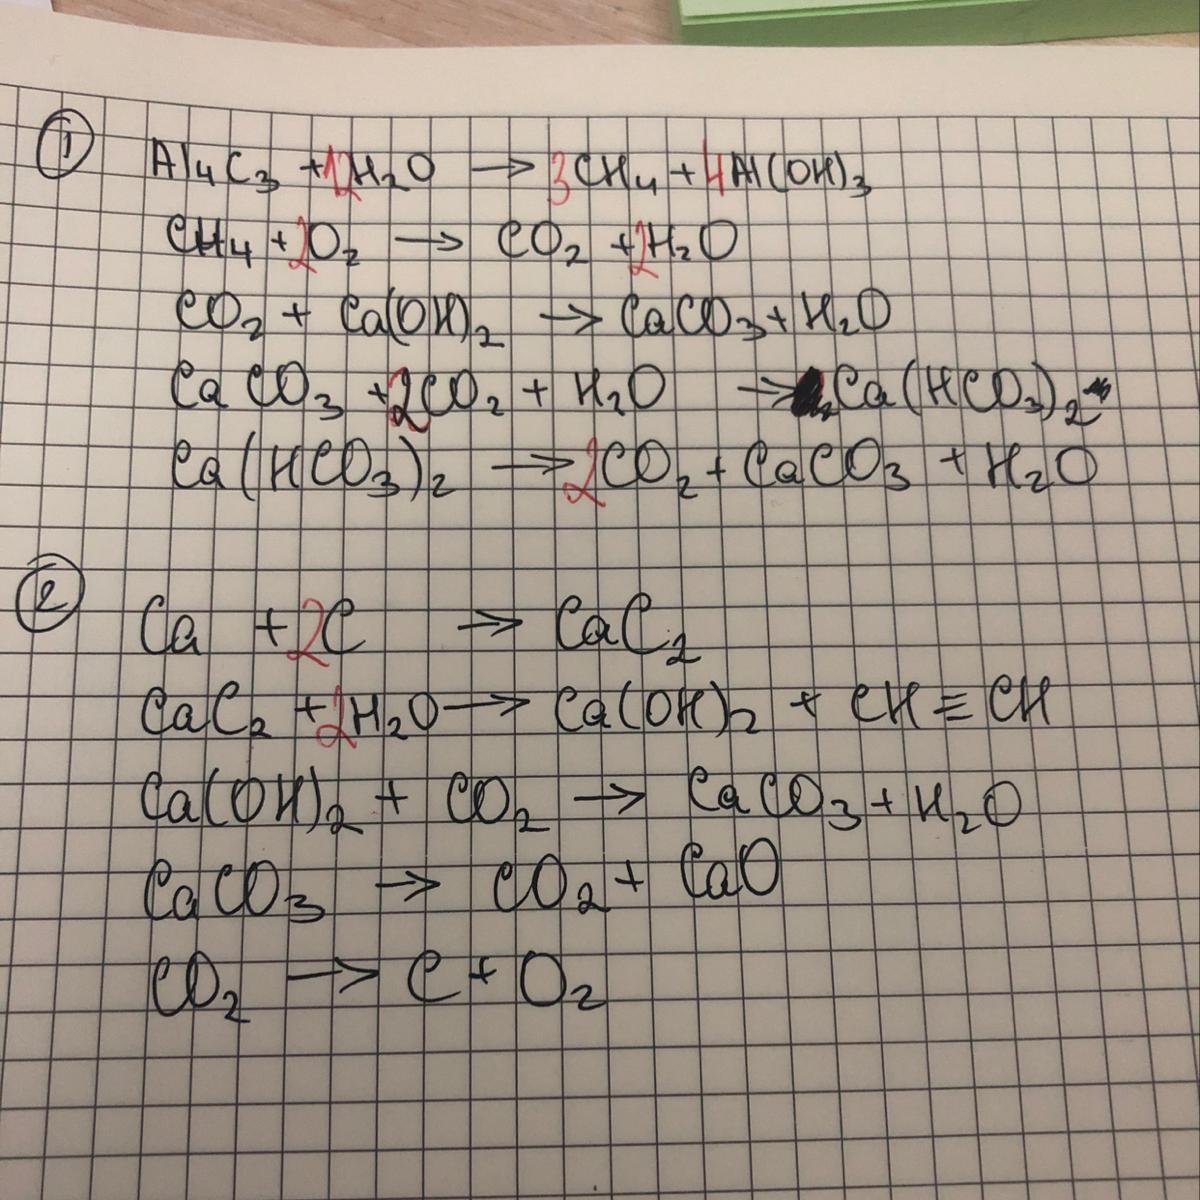 ①
Al₄C₃ + 12H₂O → 3CH₄ + 4Al(OH)₃
CH₄ + 2O₂ → CO₂ + 2H₂O
CO₂ + Ca(OH)₂ → CaCO₃ + H₂O
CaCO₃ + 2CO₂ + H₂O → Ca(HCO₃)₂
Ca(HCO₃)₂ → 2CO₂ + CaCO₃ + H₂O
②
Ca + 2C → CaC₂
CaC₂ + 2H₂O → Ca(OH)₂ + CH ≡ CH
Ca(OH)₂ + CO₂ → CaCO₃ + H₂O
CaCO₃ → CO₂ + CaO
CO₂ → C + O₂